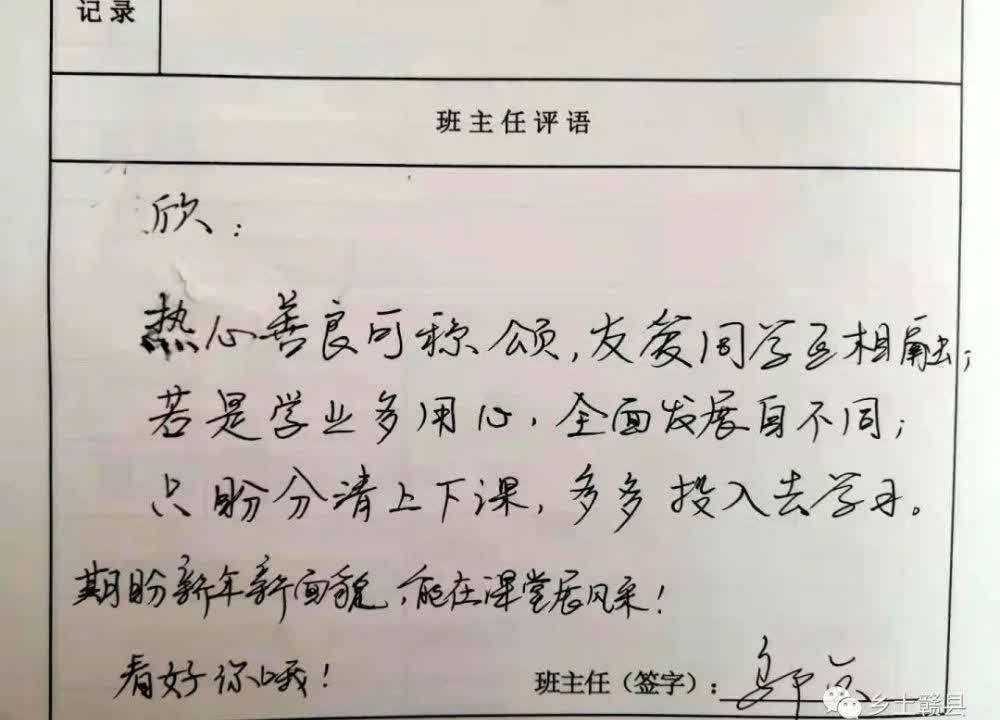 记录
班主任评语
欣：
热心善良可称颂，友爱同学互相融；
若是学业多用心，全面发展自不同；
只盼分清上下课，多多投入去学习。
期盼新年新面貌，能在课堂展风采！
看好你哦！
班主任（签字）：
乡土赣县